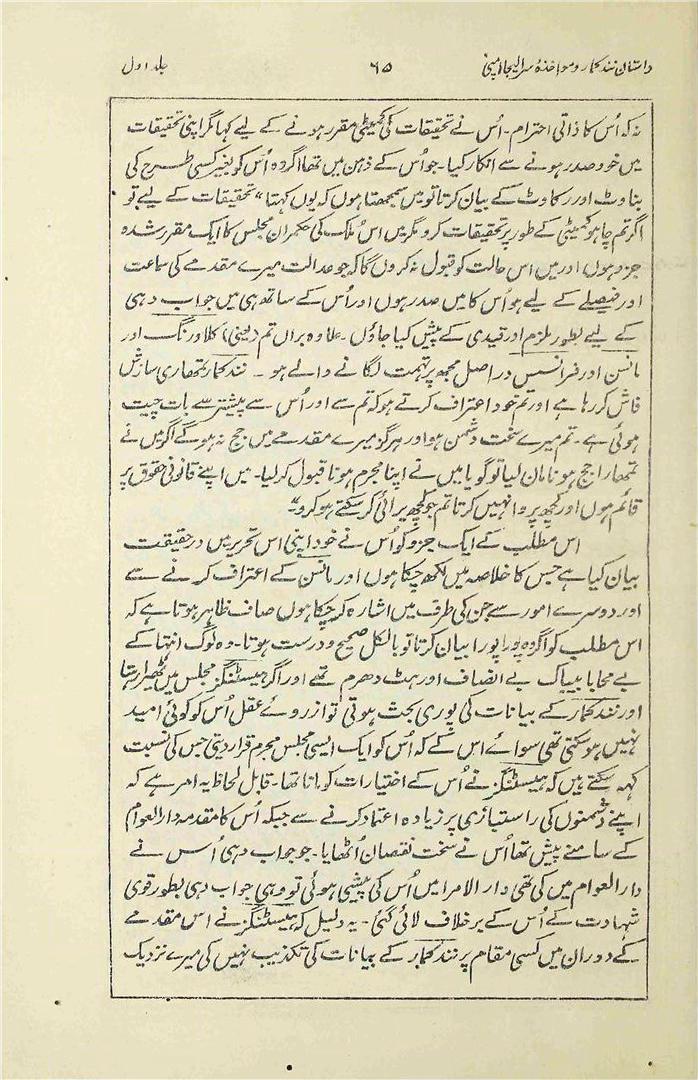 داستان نند کمار و مواخذۂ سر الیجا امپی ۶۵ جلد اول
نہ کہ اُس کا ذاتی احترام۔ اُس نے تحقیقات کی کمیٹی مقرر ہونے کے لیے کہا مگر اپنی تحقیقات
میں خود صدر ہونے سے انکار کیا۔ جو اُس کے ذہن میں تھا اگر وہ اُس کو بغیر کسی طرح کی
بناوٹ اور رکاوٹ کے بیان کرتا تو میں سمجھتا ہوں کہ یوں کہتا "تحقیقات کے لیے تو
اگر تم چاہو کمیٹی کے طور پر تحقیقات کرو مگر میں اس ملک کی حکمران مجلس کا ایک مقرر شدہ
جزو ہوں اور میں اس حالت کو قبول نہ کروں گا کہ جو عدالت میرے مقدمے کی سماعت
اور فیصلے کے لیے ہو اُس کا میں صدر ہوں اور اُس کے ساتھ ہی میں جواب دہی
کے لیے بطور ملزم اور قیدی کے پیش کیا جاؤں۔ علاوہ براں تم (یعنی) کلاورنگ اور
مانسن اور فرانسس دراصل مجھ پر تہمت لگانے والے ہو۔ نند کمار تمھاری سازش
فاش کر رہا ہے اور تم خود اعتراف کرتے ہو کہ تم سے اور اُس سے پیشتر سے بات چیت
ہوئی ہے۔ تم میرے سخت دشمن ہو اور ہرگز میرے مقدمے میں جج نہ ہوگے اگر میں نے
تمھارا جج ہونا مان لیا تو گویا میں نے اپنا مجرم ہونا قبول کر لیا۔ میں اپنے قانونی حقوق پر
قائم ہوں اور کچھ پروا نہیں کرتا تم جو کچھ برائی کر سکتے ہو کرو"۔
اس مطلب کے ایک جزو کو اُس نے خود اپنی اس تحریر میں درحقیقت
بیان کیا ہے جس کا خلاصہ میں لکھ چکا ہوں اور مانسن کے اعتراف کرنے سے
اور دوسرے امور سے جن کی طرف میں اشارہ کر چکا ہوں صاف ظاہر ہوتا ہے کہ
اس مطلب کو اگر وہ پورا پورا بیان کرتا تو بالکل صحیح و درست ہوتا۔ وہ لوگ انتہا کے
بے محابا بیباک بے انصاف اور ہٹ دھرم تھے اور اگر ہیسٹنگز مجلس میں ٹھیرا رہتا
اور نند کمار کے بیانات کی پوری بحث ہوتی تو از روئے عقل اُس کو کوئی امید
نہیں ہو سکتی تھی سوائے اس کے کہ اُس کو ایک ایسی مجلس مجرم قرار دیتی جس کی نسبت
کہہ سکتے ہیں کہ ہیسٹنگز نے اُس کے اختیارات کو مانا تھا۔ قابل لحاظ یہ امر ہے کہ
اپنے دشمنوں کی راستبازی پر زیادہ اعتماد کرنے سے جبکہ اُس کا مقدمہ دارالعوام
کے سامنے پیش تھا اُس نے سخت نقصان اُٹھایا۔ جو جواب دہی اُس نے
دارالعوام میں کی تھی دارالامرا میں اُس کی پیشی ہوئی تو وہی جواب دہی بطور قوی
شہادت کے اُس کے برخلاف لائی گئی۔ یہ دلیل کہ ہیسٹنگز نے اس مقدمے
کے دوران میں کسی مقام پر نند کمار کے بیانات کی تکذیب نہیں کی میرے نزدیک